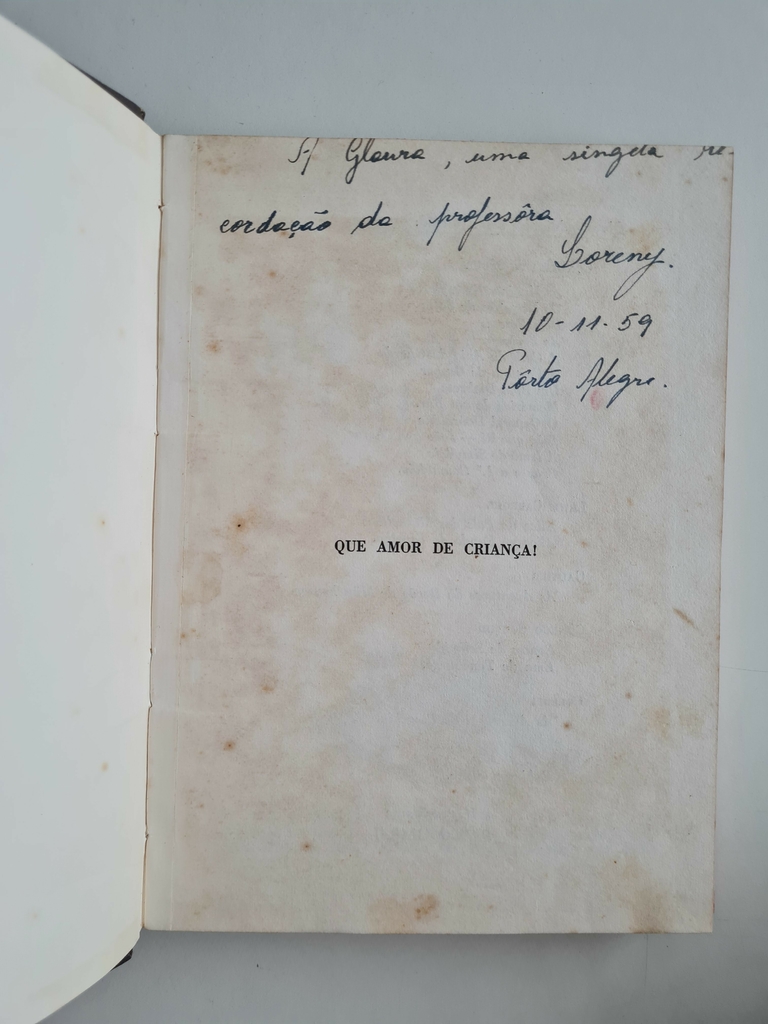 A Glaura, uma singela re-
cordação da professôra
Loreny.
10-11-59
Pôrto Alegre.
QUE AMOR DE CRIANÇA!